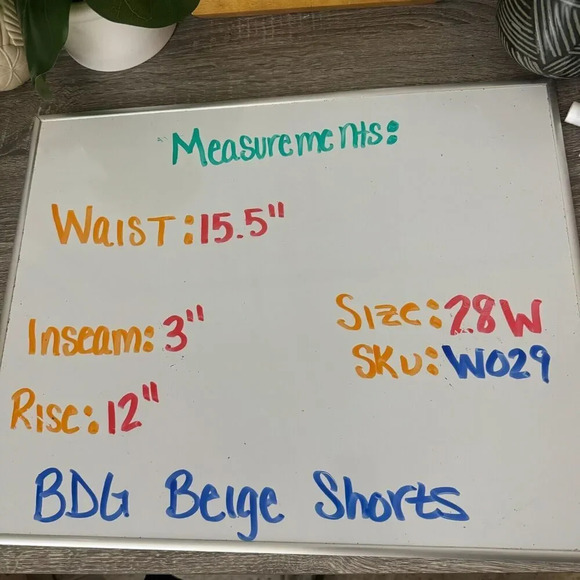 Measurements:
Waist: 15.5"
Inseam: 3"
Size: 28W
SKU: W029
Rise: 12"
BDG Beige Shorts